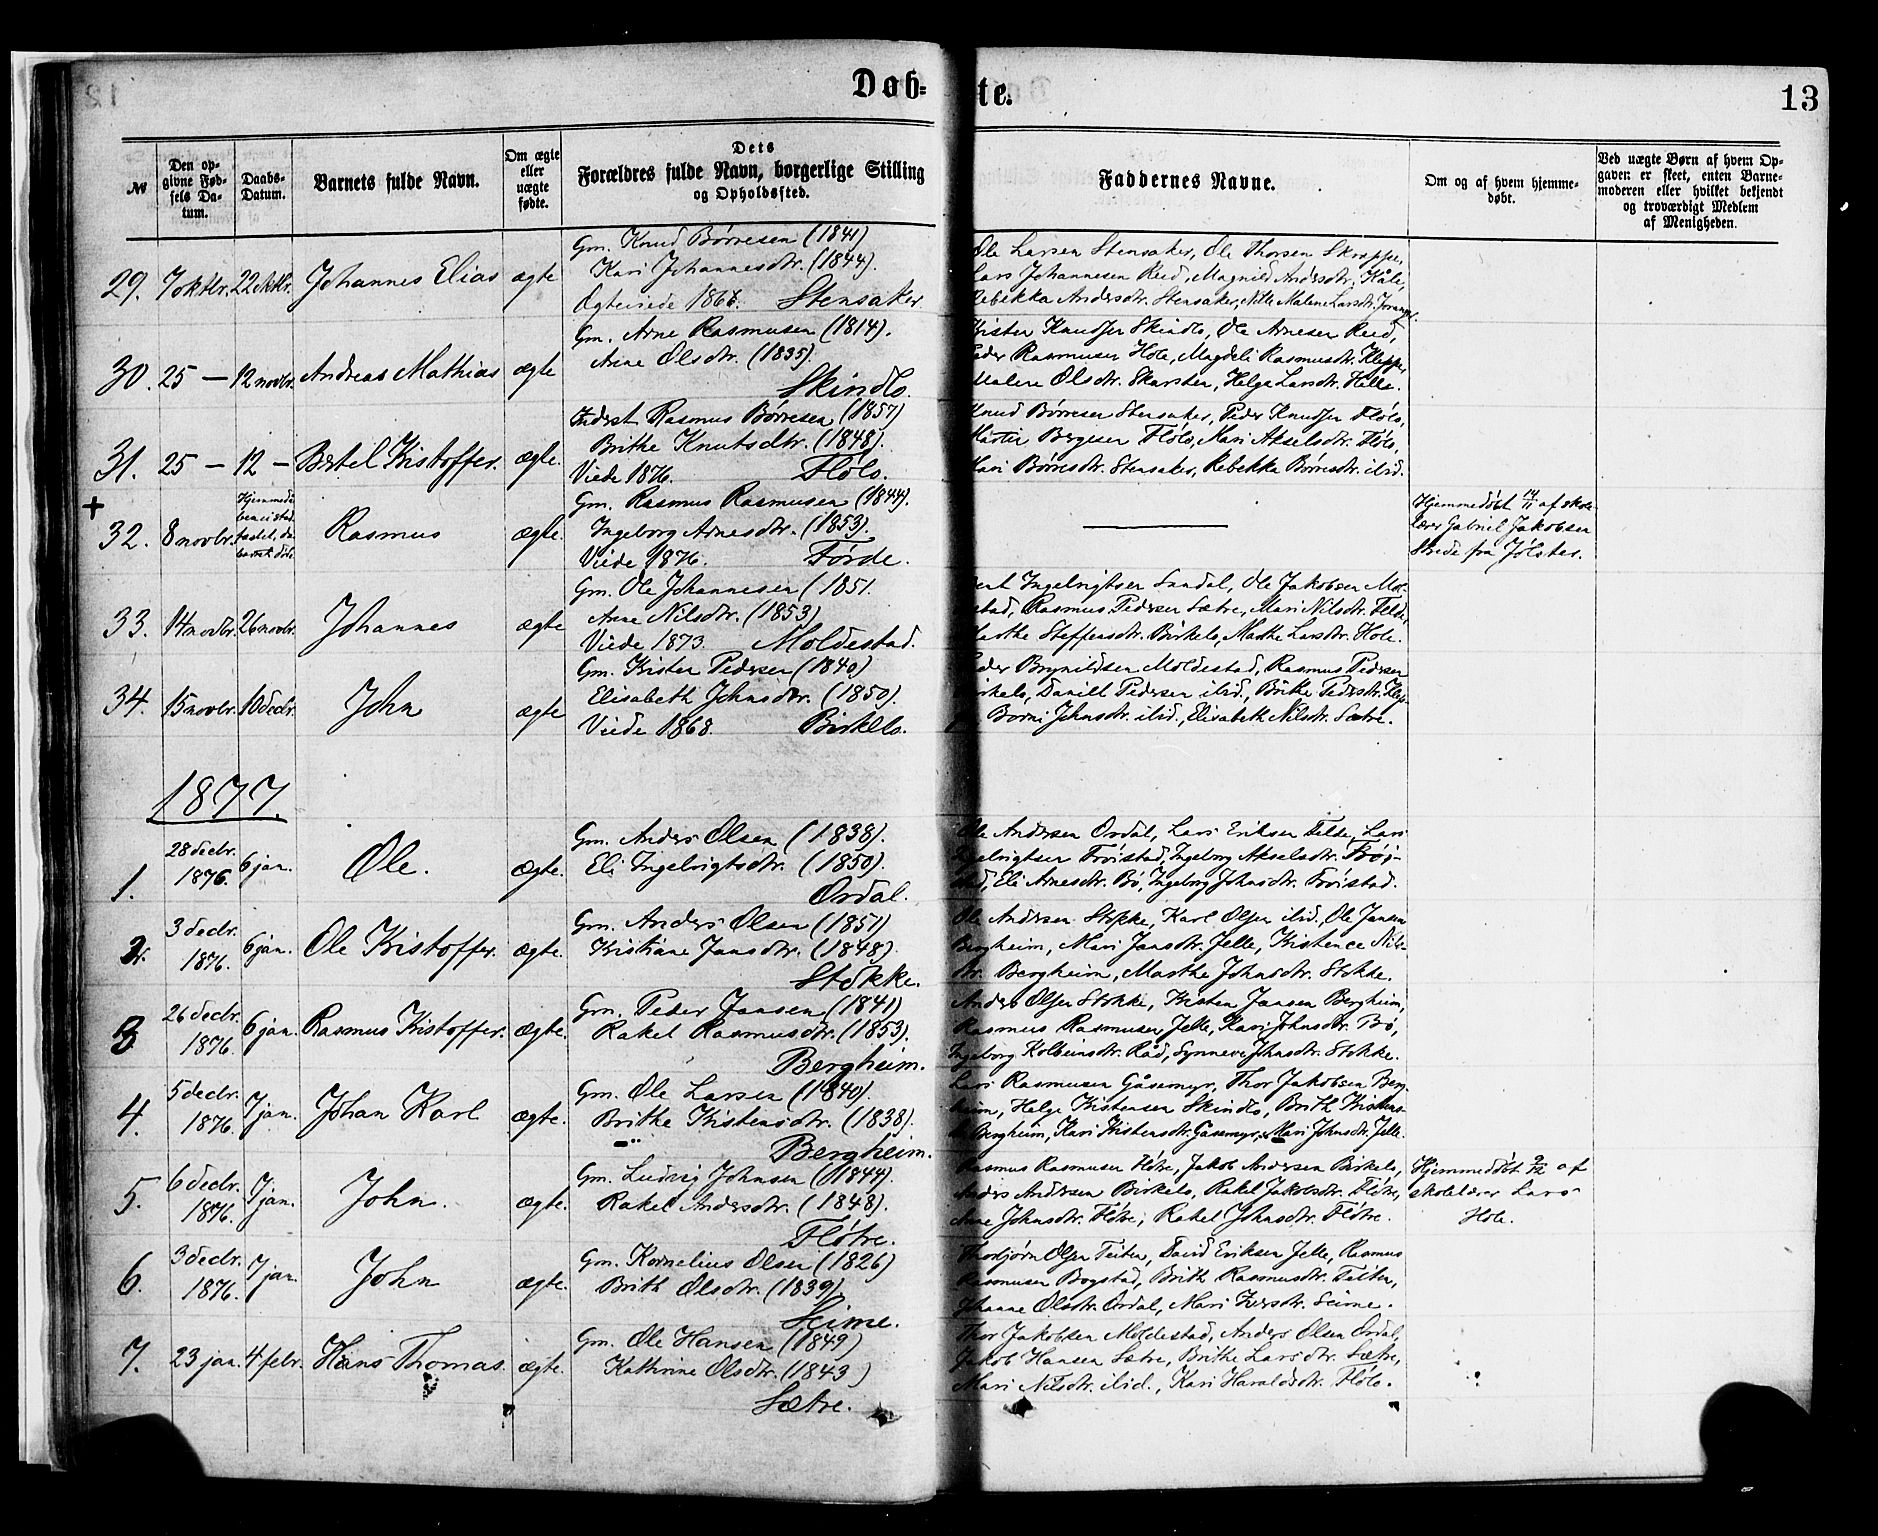 Døb=
te.
13
№
Den op-
givne Fød-
sels Da-
tum.
Daabs-
Datum.
Barnets fulde Navn.
Om ægte
eller
uægte
fødte.
Dets
Forældres fulde Navn, borgerlige Stilling
og Opholdssted.
Faddernes Navne.
Om og af hvem hjemme-
døbt.
Ved uægte Børn af hvem Op-
gaven er skeet, enten Barne-
moderen eller hvilket bekjendt
og troværdigt Medlem
af Menigheden.
29. 7 oktbr. 22 oktbr. Johannes Elias ægte
Gm. Knud Børresen (1841)
Kari Johannesdtr. (1844).
Ægteviede 1868. Stensaker.
Ole Larsen Stensaker, Ole Thorsen Skreppe,
Lars Johannesen Reed, Magnild Andersdtr. Kåle,
Rebekka Andersdtr. Stensaker, Nille Malene Larsdtr.
30. 25 — 12 novbr. Andreas Mathias ægte
Gm. Arne Rasmusen (1814).
Anne Olsdtr. (1835).
Skindlo.
Kristen Knudsen Skindlo, Ole Arnesen Reed,
Peder Rasmusen Hole, Magdeli Rasmusdtr. Kleppe,
Malene Olsdtr. Skarsten, Helga Larsdtr. Hille.
31. 25 — 12 — Bertel Kristoffer. ægte.
Inderst Rasmus Børresen (1857)
Brithe Knutsdtr. (1848).
Viede 1876. Flølo.
Knud Børresen Stensaker, Peder Knudsen Flølo,
Bergesen Flølo, Mari Akselsdtr. Flølo,
Mari Børresdtr. Stensaker, Rebekka Børresdtr. ibid.
+
32. 8 novbr. Rasmus ægte.
Gm. Rasmus Rasmusen (1844).
Ingeborg Arnesdtr. (1853).
Viede 1876. Førde.
Hjemmedøbt af skole-
lærer Gabriel Jakobsen
Strede fra Jølster.
33. 14 novbr. 26 novbr. Johannes ægte
Gm. Ole Johannesen (1851.
Anne Nilsdtr. (1853)
Viede 1873. Moldestad.
Bent Ingebrigtsen Sandal, Ole Jakobsen Mol-
destad, Rasmus Pedersen Sætre, Mari Nilsdtr. Felde,
Marthe Steffensdtr. Birkelo, Marthe Larsdtr. Hole.
34. 15 novbr. 10 decbr. John ægte
Gm. Krister Pedersen (1840)
Elisabeth Johnsdtr. (1850).
Viede 1868. Birkelo.
Peder Brynildsen Moldestad, Rasmus Pedersen
Birkelo, Daniel Pedersen ibid., Brithe Pedersdtr. Klep-
pe, Borni Johnsdtr. ibid., Elisabeth Nilsdtr. Sætre.
1877.
1. 28 decbr. 1876. 6 jan. Ole. ægte.
Gm. Anders Olsen (1838).
Eli Ingebrigtsdtr. (1850).
Ordal.
Ole Andersen Ordal, Lars Eriksen Felde, Lars
Ingebrigtsen Frøistad, Ingeborg Akselsdtr. Frøi-
stad, Eli Arnesdtr. Bø, Ingeborg Johnsdtr. Frøistad.
2. 3 decbr. 1876. 6 jan. Ole Kristoffer. ægte.
Gm. Anders Olsen (1851)
Kristiane Jansdtr. (1848).
Stokke.
Ole Andersen Stokke, Karl Olsen ibid., Ole Jansen
Bergheim, Mari Jansdtr. Jelle, Kristence Nils-
dtr. Bergheim, Marthe Johnsdtr. Stokke.
3. 26 decbr. 1876. 6 jan. Rasmus Kristoffer. ægte.
Gm. Peder Jansen (1841)
Rakel Rasmusdtr. (1853).
Bergheim.
Anders Olsen Stokke, Kristen Jansen Bergheim,
Rasmus Rasmusen Jelle, Kari Johnsdtr. Bø,
Ingeborg Kolbeinsdtr. Råd, Synneve Johnsdtr. Stokke.
4. 5 decbr. 1876. 7 jan. Johan Karl ægte.
Gm. Ole Larsen (1840).
Brithe Kristensdtr. (1838).
Bergheim.
Lars Rasmusen Gåsemyr, Thor Jakobsen Berg-
heim, Helge Kristensen Skindlo, Brith Kristens-
dtr. Bergheim, Kari Kristensdtr. Gåsemyr, Mari Johnsdtr. Jelle.
5. 6 decbr. 1876. 7 jan. John. ægte.
Gm. Ludvig Johnsen (1844).
Rakel Andersdtr. (1848).
Fløtre.
Rasmus Rasmusen Fløtre, Jakob Andersen Birkelo,
Anders Andersen Birkelo, Rakel Jakobsdtr. Fløtre,
Anne Johnsdtr. Fløtre, Rakel Johnsdtr. Fløtre.
Hjemmedøbt 9/12 af
skolelærer Lars
Hole.
6. 3 decbr. 1876. 7 jan. John ægte.
Gm. Kornelius Olsen (1826)
Brith Olsdtr. (1839).
Seime.
Thorbjørn Olsen Teiten, David Eriksen Jelle, Rasmus
Rasmusen Bogstad, Brith Rasmusdtr. Teiten,
Johanne Olsdtr. Ordal, Mari Iversdtr. Seime.
7. 23 jan. 4 febr. Hans Thomas. ægte.
Gm. Ole Hansen (1849)
Kathrine Olsdtr. (1843)
Sætre.
Thor Jakobsen Moldestad, Anders Olsen Ordal,
Jakob Hansen Sætre, Brithe Larsdtr. Sætre,
Mari Nilsdtr. ibid., Kari Haraldsdtr. Flølo.